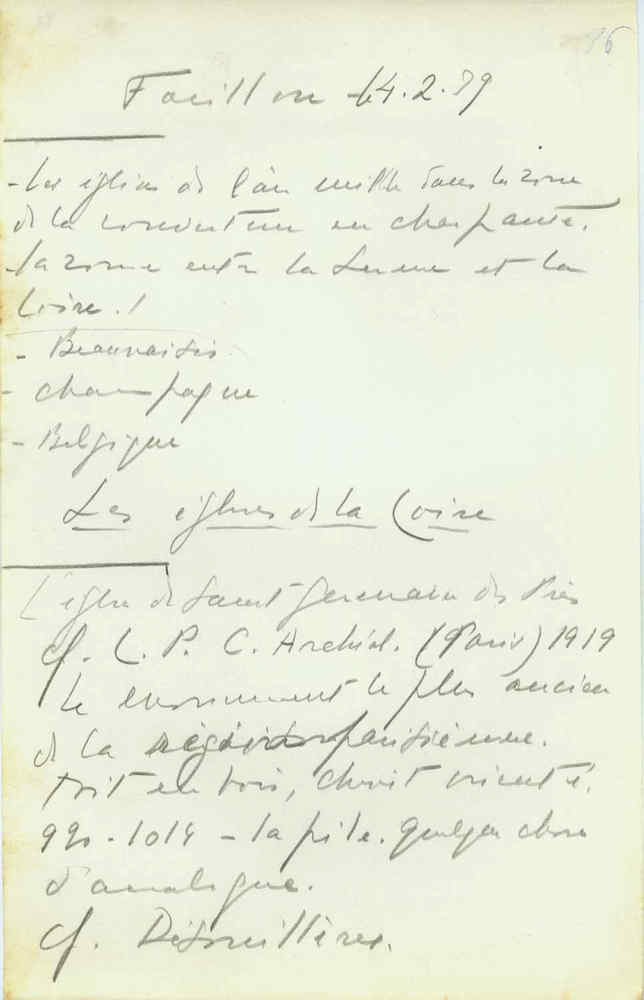 86
Focillon 14.2.39
- Les églises de l'an mille dans la zone
de la couverture en charpente.
- la zone entre la Seine et la
Loire.!
- Beauvaisis
- Champagne
- Belgique
Les églises de la Loire
L'église de Saint-Germain des Prés
cf. L. P. C. Archéol. (Paris) 1919
le monument le plus ancien
de la région parisienne.
toit en bois, chevet orienté.
990-1014 - la pile. quelque chose
d'analogue.
cf.